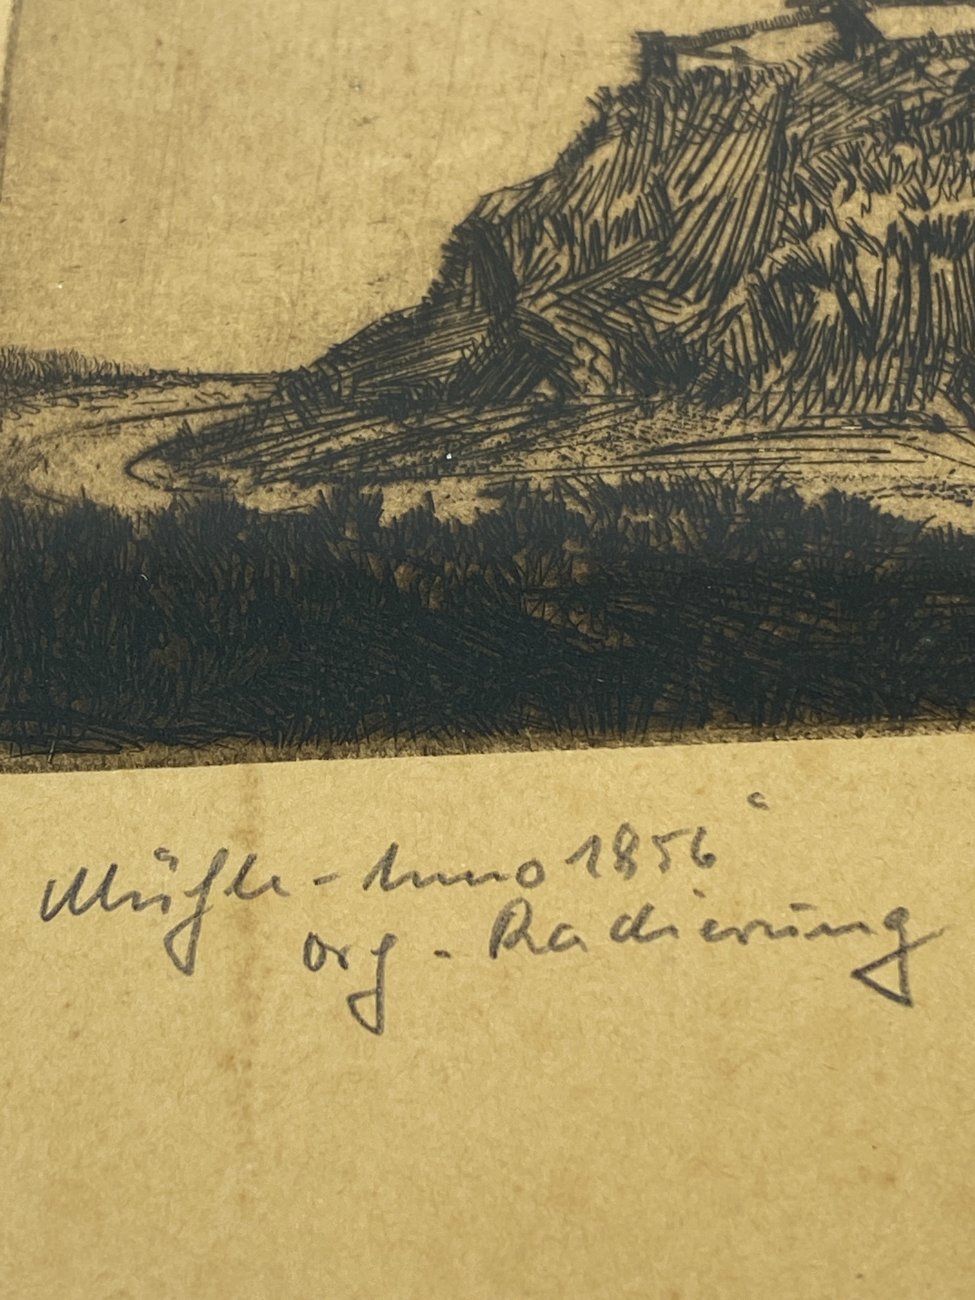 Mühle - Anno 1856"
org. Radierung